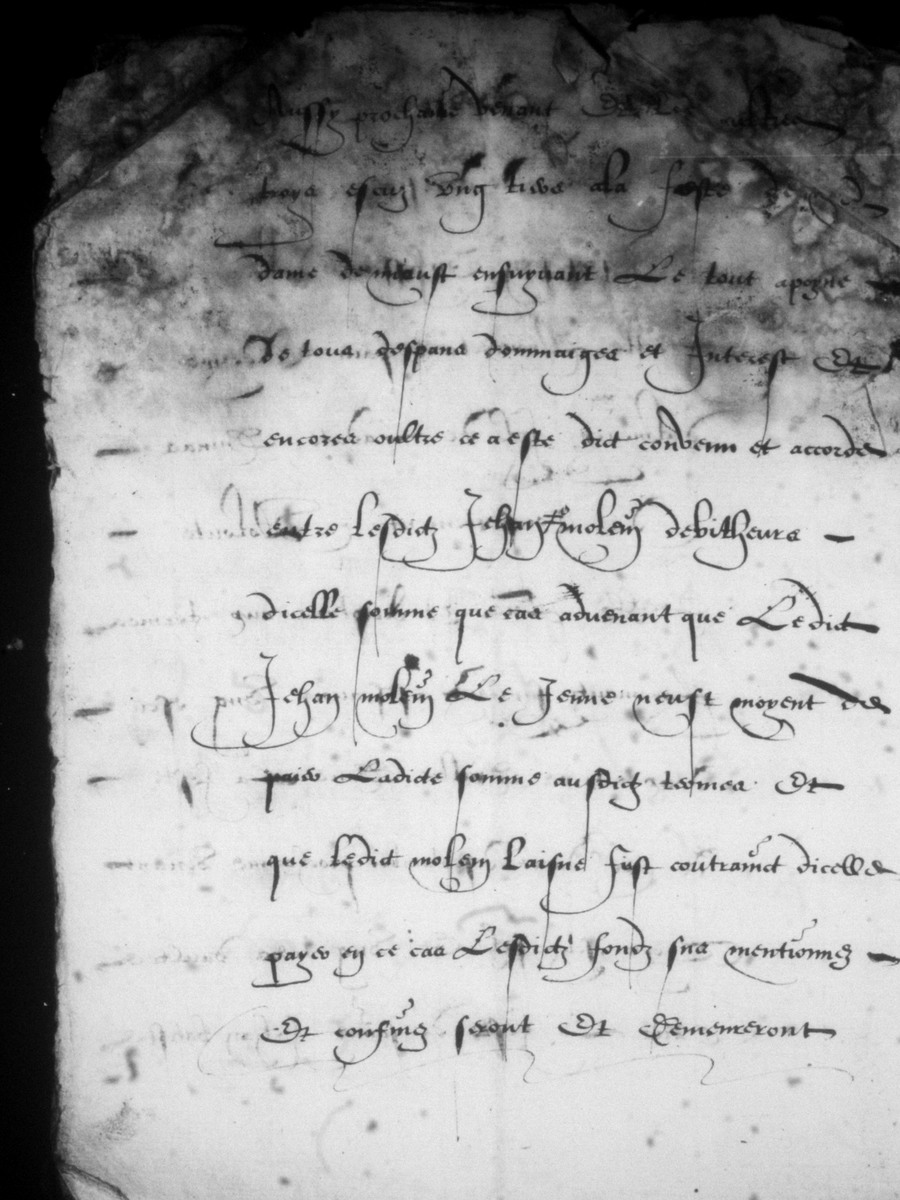 Aussy prochaine venant Et les aultres
troys escuz ung tiers ala feste de
dame de mi aust ensuyvant Le tout a poyne
De tous despans dommaiges et Interest Et
encores oultre ce a este dict convenu et accorde
entre lesdictz Jehan molein debitheurs
dicelle somme que cas advenant que Ledict
Jehan molein Le Jeune neust moyent de
paier Ladicte somme ausdictz termes Et
que ledict molein Laisne fust contrainct dicelle
payer en ce cas Lesdictz fondz sus mentionnez
Et confinez seront Et Demeureront